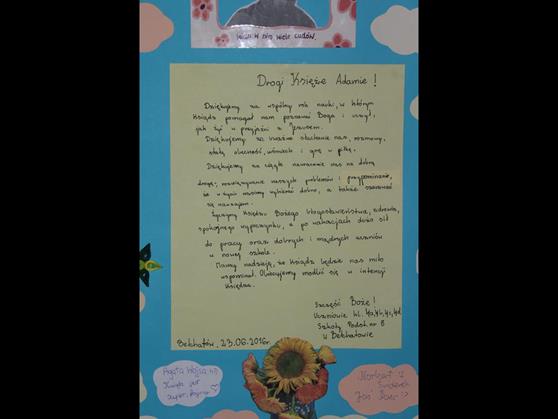 wiele cudów.
Drogi Księże Adamie!
Dziękujemy za wspólny rok nauki, w którym
Ksiądz pomagał nam poznawać Boga i uczył,
jak żyć w przyjaźni z Jezusem.
Dziękujemy za uważne słuchanie nas, rozmowy,
stałą obecność, uśmiech i grę w piłkę.
Dziękujemy za ciągłe nawracanie nas na dobrą
drogę, rozwiązywanie naszych problemów i przypominanie,
że w życiu musimy wybierać dobro, a także szanować
się nawzajem.
Życzymy Księdzu Bożego błogosławieństwa, zdrowia,
spokojnego wypoczynku, a po wakacjach dużo sił
do pracy oraz dobrych i mądrych uczniów
w nowej szkole.
Mamy nadzieję, że Ksiądz będzie nas miło
wspominał. Obiecujemy modlić się w intencji
Księdza.
Szczęść Boże!
Uczniowie kl. 4a, 4b, 4c, 4d
Szkoły Podst. nr 8
w Bełchatowie
Bełchatów, 23.06.2016r.
Agata Wojsa
Ksiądz jest
super.
Norbert